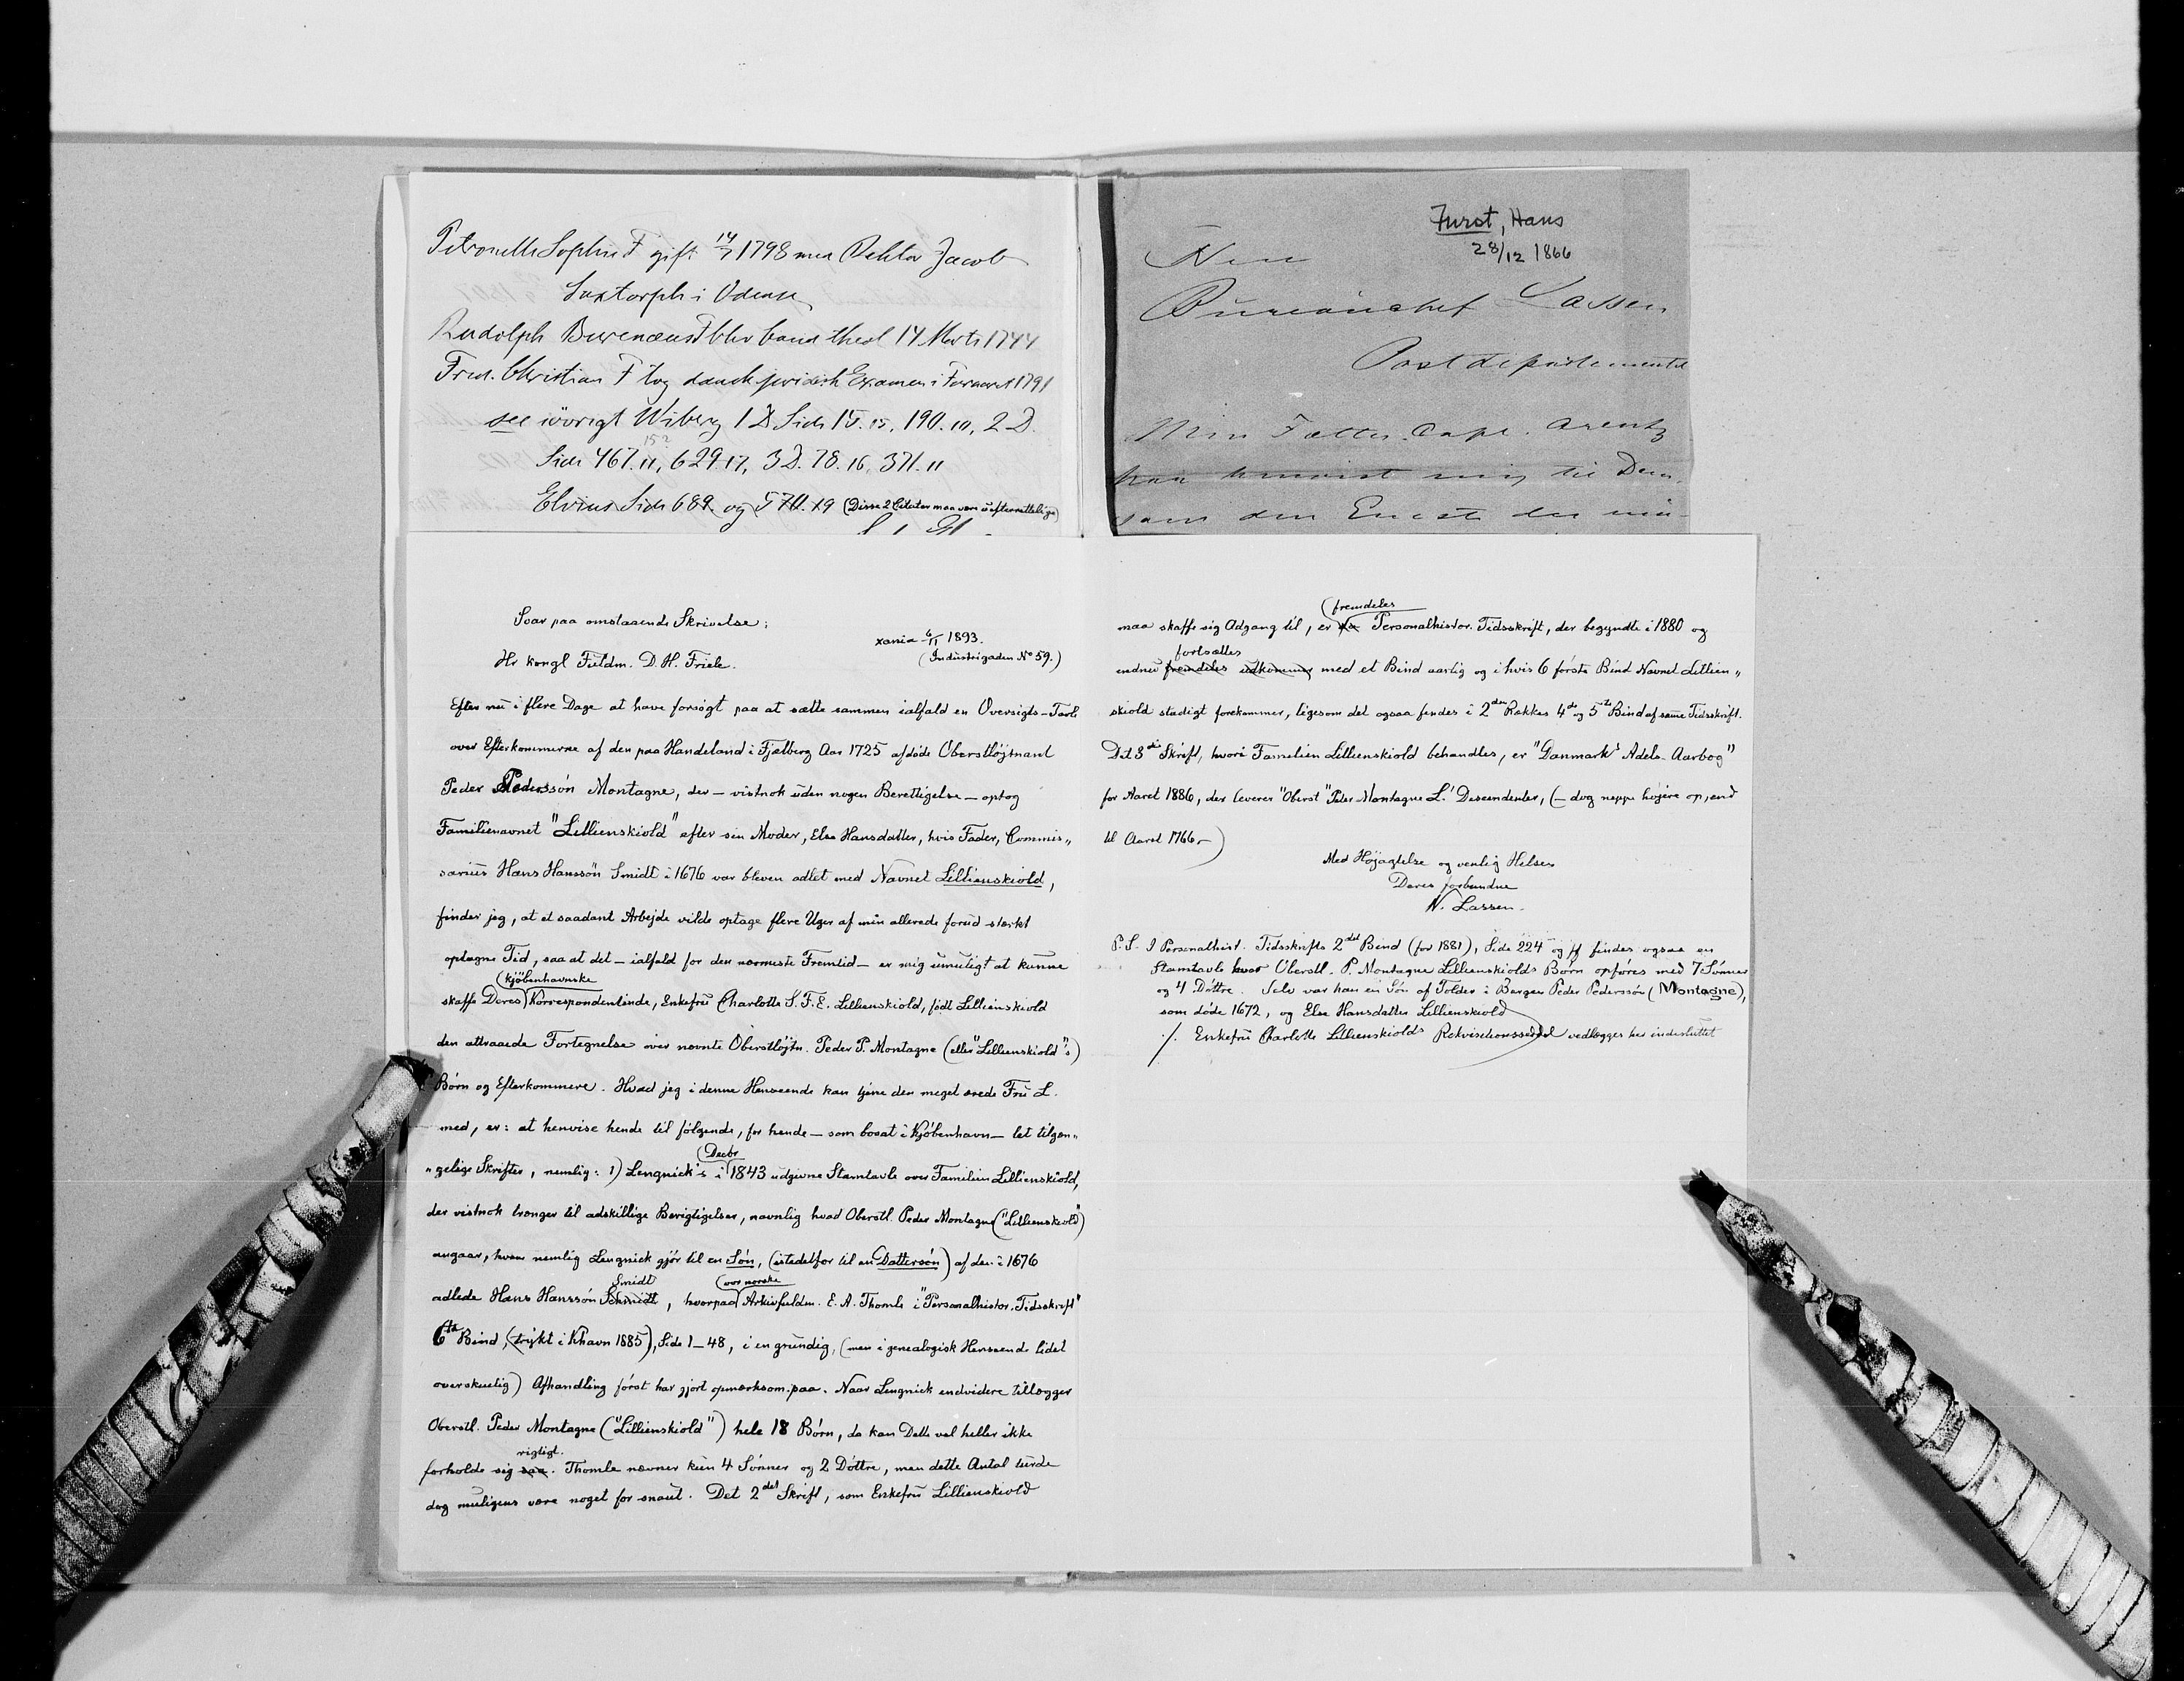 Petronelle Sophie F gift 14/7 1798 med Rektor Jacob
Saxtorph i Odense
Rudolph Burenæus F blev cand theol 14 Marts 1744
Fred. Christian F tog dansk juridisk Examen i Foraaret 1791
see iövrigt Wiberg 1 D. Side 15. 15. 190. 10, 2 D.
Side 467. 11, 629. 17, 3 D. 78. 16, 371. 11
Elvius Side 689. og 570. 19 (Disse 2 Citater maa være uefterrettelige)
Furst, Hans
28/12 1866
Herr
Bureauchef Lassen
Postdepartementet
Min Fætter Capt. Arentz
har henvist mig til Dem,
som den Eneste der
Svar paa omstaaende Skrivelse:
xania 6/11 1893.
(Industrigaden No 59.)
Hr kongl Fuldm. D. H. Friele.
Efter nu i flere Dage at have forsögt paa at sætte sammen ialfald en Oversigts-Tavle
over Efterkommerne af den paa Handeland i Fjelberg Aar 1725 afdöde Oberstlöjtnant
Peder Pederssön Montagne, der — vistnok uden nogen Berettigelse — optog
Familienavnet "Lillienskiold" efter sin Moder, Else Hansdatter, hvis Fader, Commis„
sarius Hans Hanssön Smidt i 1676 var bleven adlet med Navnet Lillienskiold,
finder jeg, at et saadant Arbejde vilde optage flere Uger af min allerede forud stærkt
optagne Tid, saa at det — ialfald for den nærmeste Fremtid — er mig umuligt at kunne
(kjöbenhavnske
skaffe Deres Korrespondentinde, Enkefru Charlotte S. F. E. Lillienskiold, födt Lillienskiold
den attraaede Fortegnelse over nævnte Oberstlöjtn. Peder P. Montagne (eller "Lillienskiold"'s)
Börn og Efterkommere. Hvad jeg i denne Henseende kan tjene den meget ærede Fru L.
med, er: at henvise hende til fölgende, for hende — som bosat i Kjöbenhavn — let tilgæn„
„gelige Skrifter, nemlig: 1) Lengnick's i 1843 udgivne Stamtavle over Familien Lillienskiold,
Decbr
der vistnok trænger til adskillige Berigtigelser, navnlig hvad Oberstl. Peder Montagne ("Lillienskiold")
angaar, hvem nemlig Lengnick gjör til en Sön, (istedetfor til en Dattersön) af den i 1676
Smidt (vor norske
adlede Hans Hanssön Schmidt, hvorpaa Arkivfuldm. E. A. Thomle i "Personalhistor. Tidsskrift"
6te Bind, (trykt i Khavn 1885), Side 1—48, i en grundig, (men i genealogisk Henseende lidet
overskuelig) Afhandling först har gjort opmærksom paa. Naar Lengnick endvidere tillægger
Oberstl. Peder Montagne ("Lillienskiold") hele 18 Börn, da kan Dette vel heller ikke
rigtigt.
forholde sig saa. Thomle nævner kun 4 Sönner og 2 Döttre, men dette Antal turde
dog muligens være noget for snaut. Det 2det Skrift, som Enkefru Lillienskiold
(fremdeles
maa skaffe sig Adgang til, er Personalhistor. Tidsskrift, der begyndte i 1880 og
fortsættes
endnu fremdeles udkommer med et Bind aarlig og i hvis 6 förste Bind Navnet Lillien„
skiold stadigt forekommer, ligesom det ogsaa findes i 2den Rækkes 4de og 5te Bind af samme Tidsskrift.
Det 3die Skrift, hvori Familien Lillienskiold behandles, er "Danmarks Adels-Aarbog"
for Aaret 1886, der leverer "Oberst" Peder Montagne L.' Descendenter, (— dog neppe höjere op, end
til Aaret 1766 —)
Med Höjagtelse og venlig Hilsen
Deres forbundne
N. Lassen.
P.S. I Personalhist. Tidsskrifts 2det Bind (for 1881), Side 224 og ff findes ogsaa en
Stamtavle hvor Oberstl. P. Montagne Lillienskiolds Börn opföres med 7 Sönner
og 4 Döttre. Selv var han en Sön af Tolder i Bergen Peder Pederssön (Montagne),
som döde 1672, og Else Hansdatter Lillienskiold
./. Enkefru Charlotte Lillienskiolds Rekvisitionsseddel vedlægges her indesluttet